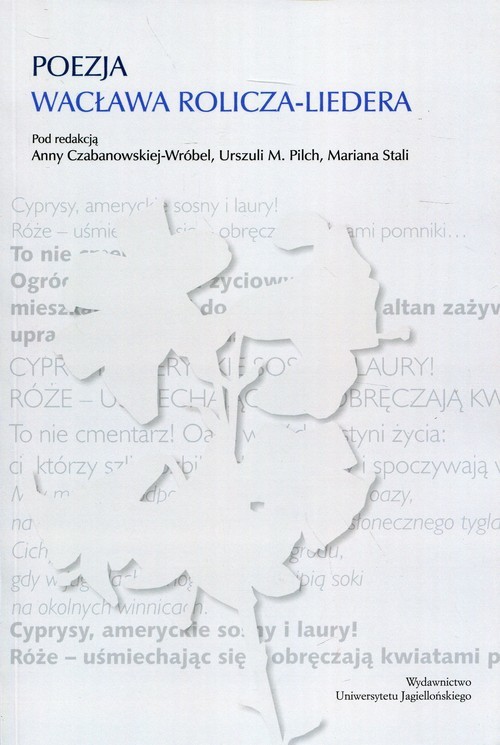 POEZJA
WACŁAWA ROLICZA-LIEDERA
Pod redakcją
Anny Czabanowskiej-Wróbel, Urszuli M. Pilch, Mariana Stali
Cyprysy, ameryckie sosny i laury!
Róże – uśmie się obręcz ami pomniki...
To nie
Ogród życiowy
miesz do altan zażyw
upra
CYPR SOS LAURY!
RÓŻE – U OBRĘCZAJĄ KW
To nie cmentarz! Oa w styni życia:
ci, którzy szli i spoczywają w
oazy,
na słonecznego tygla
Cich
gdy w pią soki
na okolnych winnicach.
Cyprysy, ameryckie sosny i laury!
Róże – uśmiechając się obręczają kwiatami p
Wydawnictwo
Uniwersytetu Jagiellońskiego